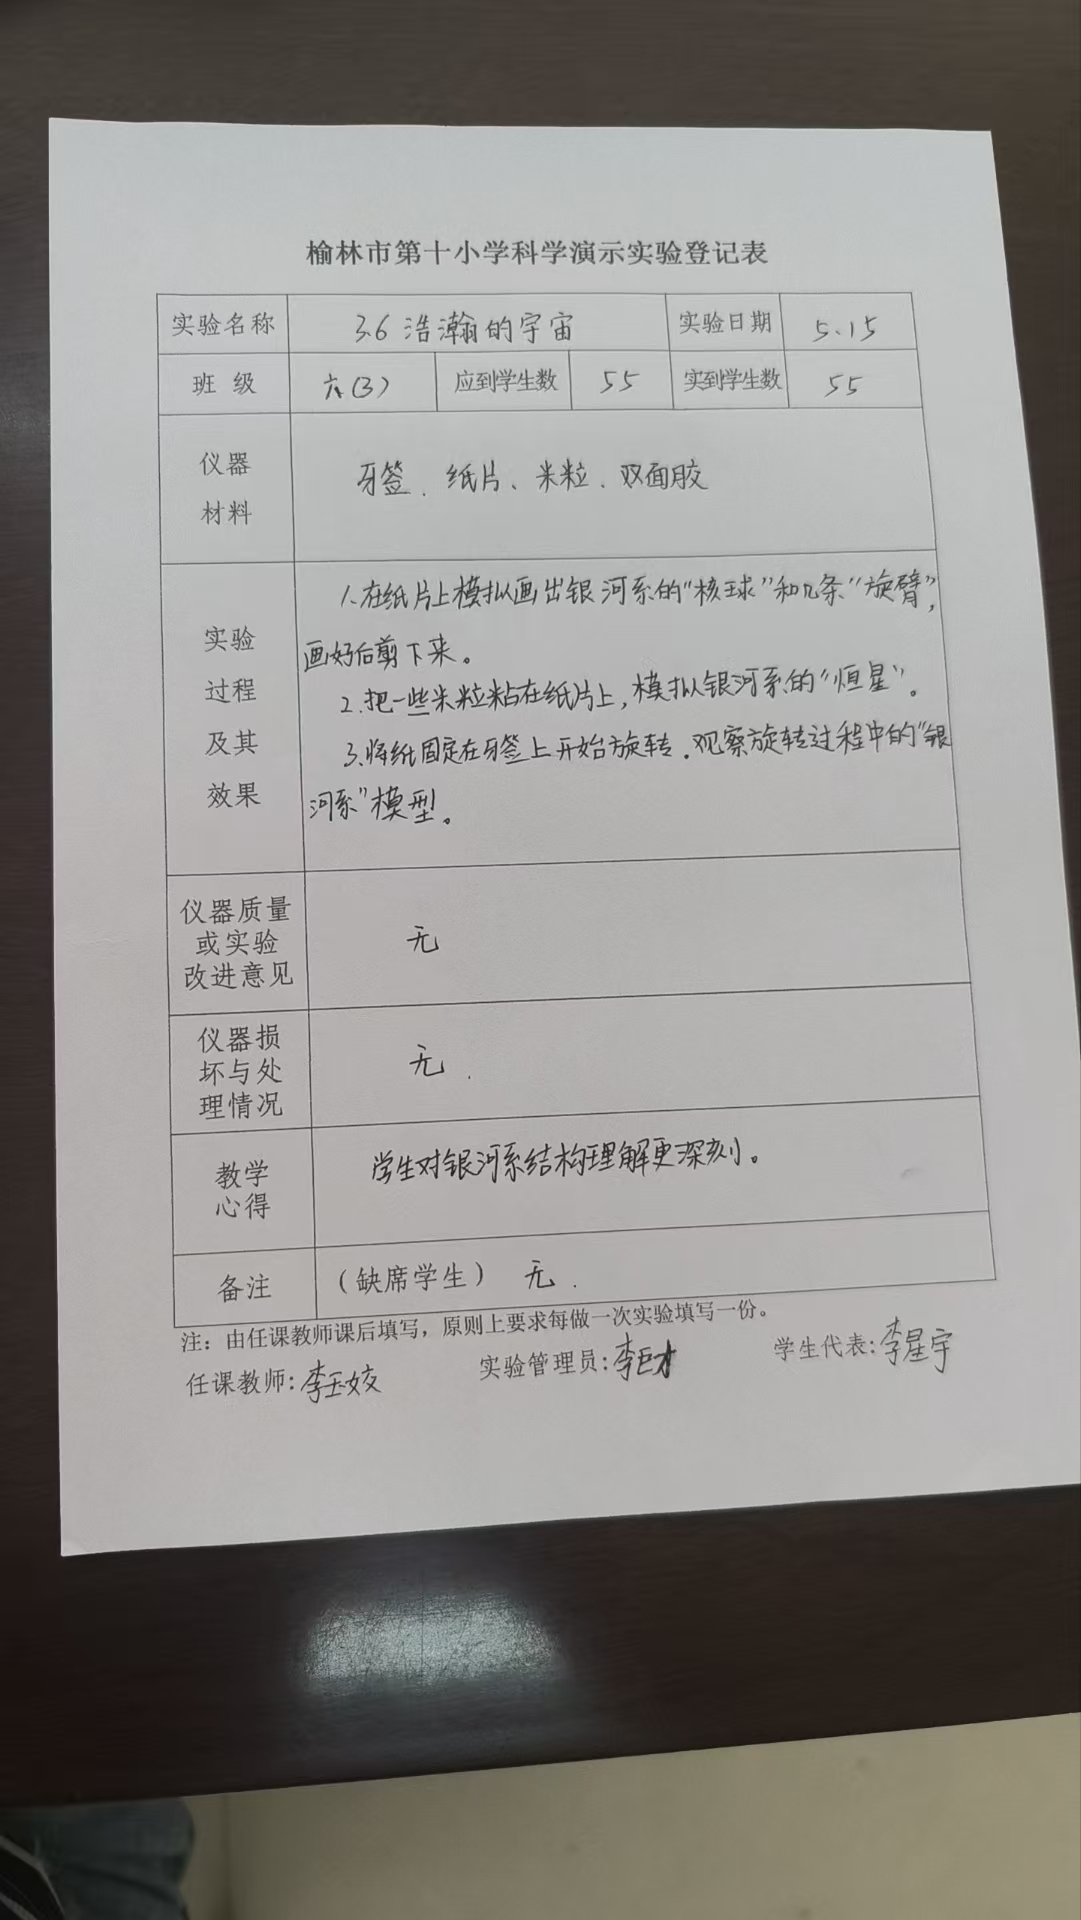 榆林市第十小学科学演示实验登记表
实验名称 3.6 浩瀚的宇宙 实验日期 5.15
班 级 六(3) 应到学生数 55 实到学生数 55
仪器
材料
牙签、纸片、米粒、双面胶
实验
过程
及其
效果
1.在纸片上模拟画出银河系的“核球”和几条“旋臂”,
画好后剪下来。
2.把一些米粒粘在纸片上,模拟银河系的“恒星”。
3.将纸固定在牙签上开始旋转.观察旋转过程中的“银
河系”模型。
仪器质量
或实验
改进意见
无
仪器损
坏与处
理情况
无.
教学
心得
学生对银河系结构理解更深刻。
备注 (缺席学生) 无.
注：由任课教师课后填写，原则上要求每做一次实验填写一份。
任课教师:李玉姣 实验管理员:李巨才 学生代表:李星宇